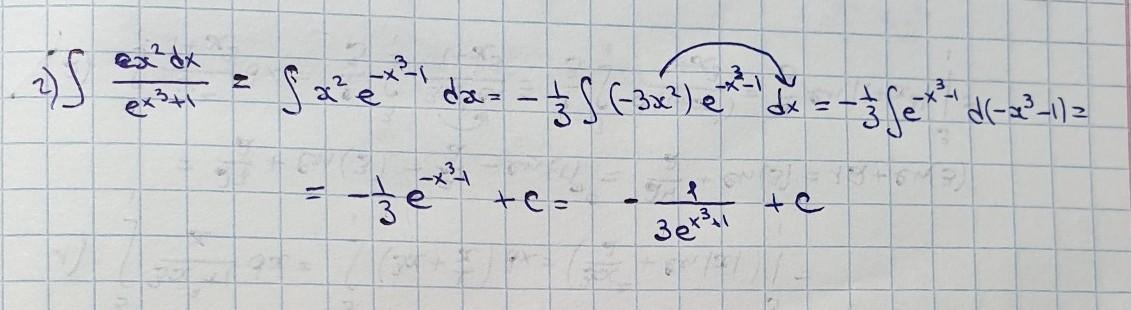 2) ∫ x² dx / e^(x³+1) = ∫ x² e^(-x³-1) dx = -1/3 ∫ (-3x²) e^(-x³-1) dx = -1/3 ∫ e^(-x³-1) d(-x³-1) =
= -1/3 e^(-x³-1) + C = - 1/(3e^(x³+1)) + C